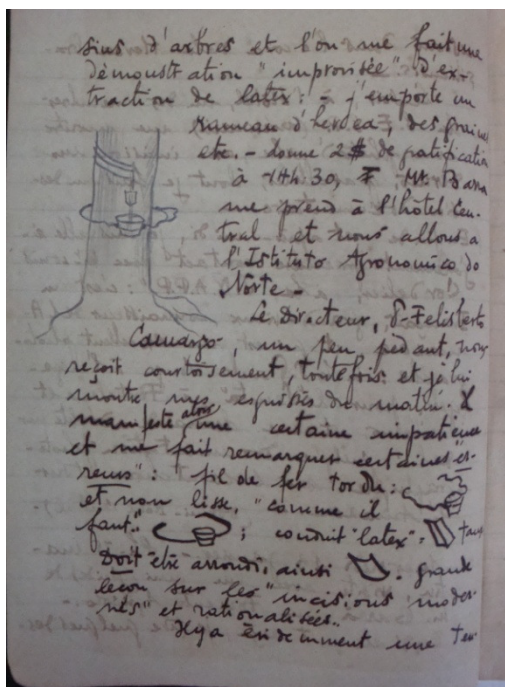 sins d'arbres et l'on me fait une
démonstration "improvisée" d'ex-
traction de latex : - j'emporte un
rameau d'hevea, des graines
etc. - donné 2$ de gratification
à 14h 30, Mr. Barra
me prend à l'hôtel Cen-
tral et nous allons a
l'Istituto Agronomico do
Norte -
Le Directeur, Felisberto
Camargo, un peu pédant, nous
reçoit courtoisement, toutefois et je lui
montre mes esquisses du matin. Il
manifeste alors une certaine impatience
et me fait remarquer certaines "er-
reurs" : fil de fer tordu :
et non lisse, "comme il
faut" ; conduit "latex" =
Doit être arrondi, ainsi . grande
leçon sur les "incisions moder-
nes" et rationalisées..
Il y a évidemment une ten-